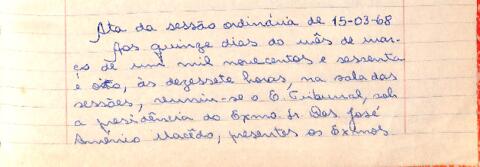 Ata da sessão ordinária de 15-03-68
Aos quinze dias do mês de mar-
ço de um mil novecentos e sessenta
e oito, às dezessete horas, na sala das
sessões, reuniu-se o E. Tribunal, sob
a presidência do Exmo. Sr. Des. José
Américo Macêdo, presentes os Exmos.